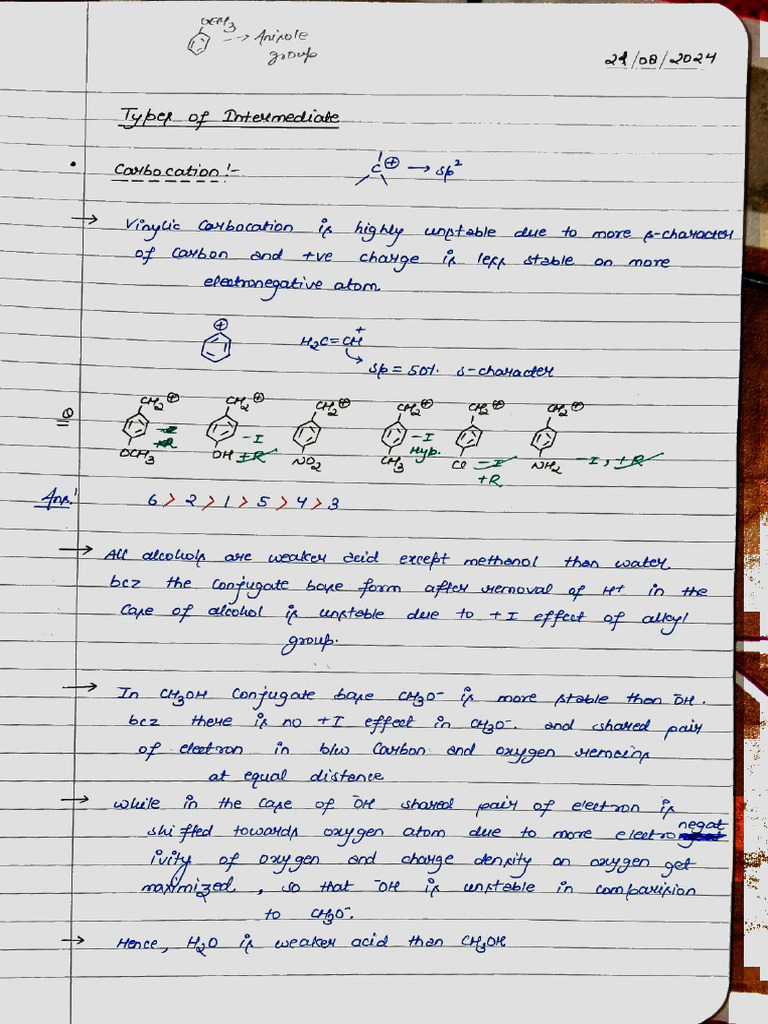 OCH3
→ Anisole
group
21/08/2024
Types of Intermediate
• Carbocation:- C⊕ → sp²
→ Vinylic Carbocation is highly unstable due to more s-character
of carbon and +ve charge is less stable on more
electronegative atom
⊕ H2C=CH+
sp = 50%. s-character
Q CH2⊕ CH2⊕ CH2⊕ CH2⊕ CH2⊕ CH2⊕
OCH3 -I +R OH -I +R NO2 CH3 -I Hyp. Cl -I +R NH2 -I, +R
Ans! 6 > 2 > 1 > 5 > 4 > 3
→ All alcohols are weaker acid except methanol then water
bcz the conjugate base form after removal of H+ in the
case of alcohol is unstable due to +I effect of alkyl
group.
→ In CH3OH Conjugate base CH3O- is more stable then -OH.
bcz there is no +I effect in CH3O-. and shared pair
of electron in b/w Carbon and oxygen remains
at equal distance
→ while in the case of -OH shared pair of electron is
shifted towards oxygen atom due to more electronegat
ivity of oxygen and charge density on oxygen get
maximized, so that -OH is unstable in comparision
to CH3O-.
→ Hence, H2O is weaker acid then CH3OH